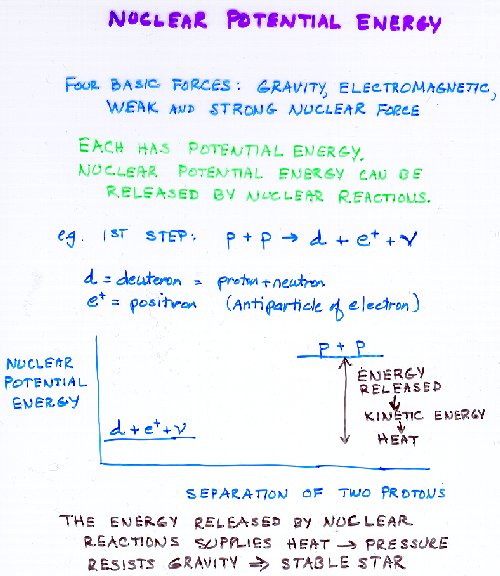 NUCLEAR POTENTIAL ENERGY
FOUR BASIC FORCES: GRAVITY, ELECTROMAGNETIC,
WEAK AND STRONG NUCLEAR FORCE
EACH HAS POTENTIAL ENERGY.
NUCLEAR POTENTIAL ENERGY CAN BE
RELEASED BY NUCLEAR REACTIONS.
e.g. 1ST STEP: p + p → d + e⁺ + ν
d = deuteron = proton + neutron
e⁺ = positron (Antiparticle of electron)
p + p
NUCLEAR
POTENTIAL
ENERGY
ENERGY
RELEASED
KINETIC ENERGY
HEAT
d + e⁺ + ν
SEPARATION OF TWO PROTONS
THE ENERGY RELEASED BY NUCLEAR
REACTIONS SUPPLIES HEAT → PRESSURE
RESISTS GRAVITY ⇒ STABLE STAR